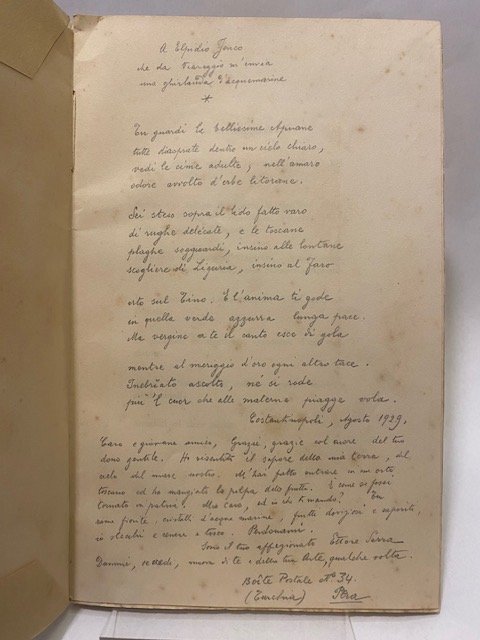 A Elpidio Jenco
che da Viareggio m'invia
una ghirlanda d'acquemarine
*
Tu guardi le bellissime Apuane
tutte diasprate dentro un cielo chiaro,
vedi le cime adulte, nell'amaro
odore avvolto d'erbe litorane.
Sei steso sopra il lido fatto varo
di rughe delicate, e le toscane
plaghe sogguardi, insino alle lontane
scogliere di Liguria, insino al Faro
erto sul Tino. E l'anima ti gode
in quella verde azzurra lunga pace.
Ma vergine a te il canto esce di gola
mentre al meriggio d'oro ogni altro tace.
Inebriato ascolto, né si rode
più il cuor che alle materne piagge vola.
Costantinopoli, Agosto 1929.
Caro e giovane amico, Grazie, grazie col cuore del tuo
dono gentile. Ho risentito il sapore della mia terra, del
cielo del mare nostro. M'hai fatto entrare in un orto
toscano ed ho mangiato la polpa delle frutta. E come se fossi
tornato in patria! Mio caro, ed io che ti mando? Tu
rame fiorite, cristalli d'acque marine, frutti doviziosi e saporiti,
io vecchi e cenere e tosco. Perdonami.
Sono il tuo affezionato Ettore Serra
Dammi, se credi, nuove di te e della tua Arte, qualche volta.
Boîte Postale No 34.
(Turchia) Pera